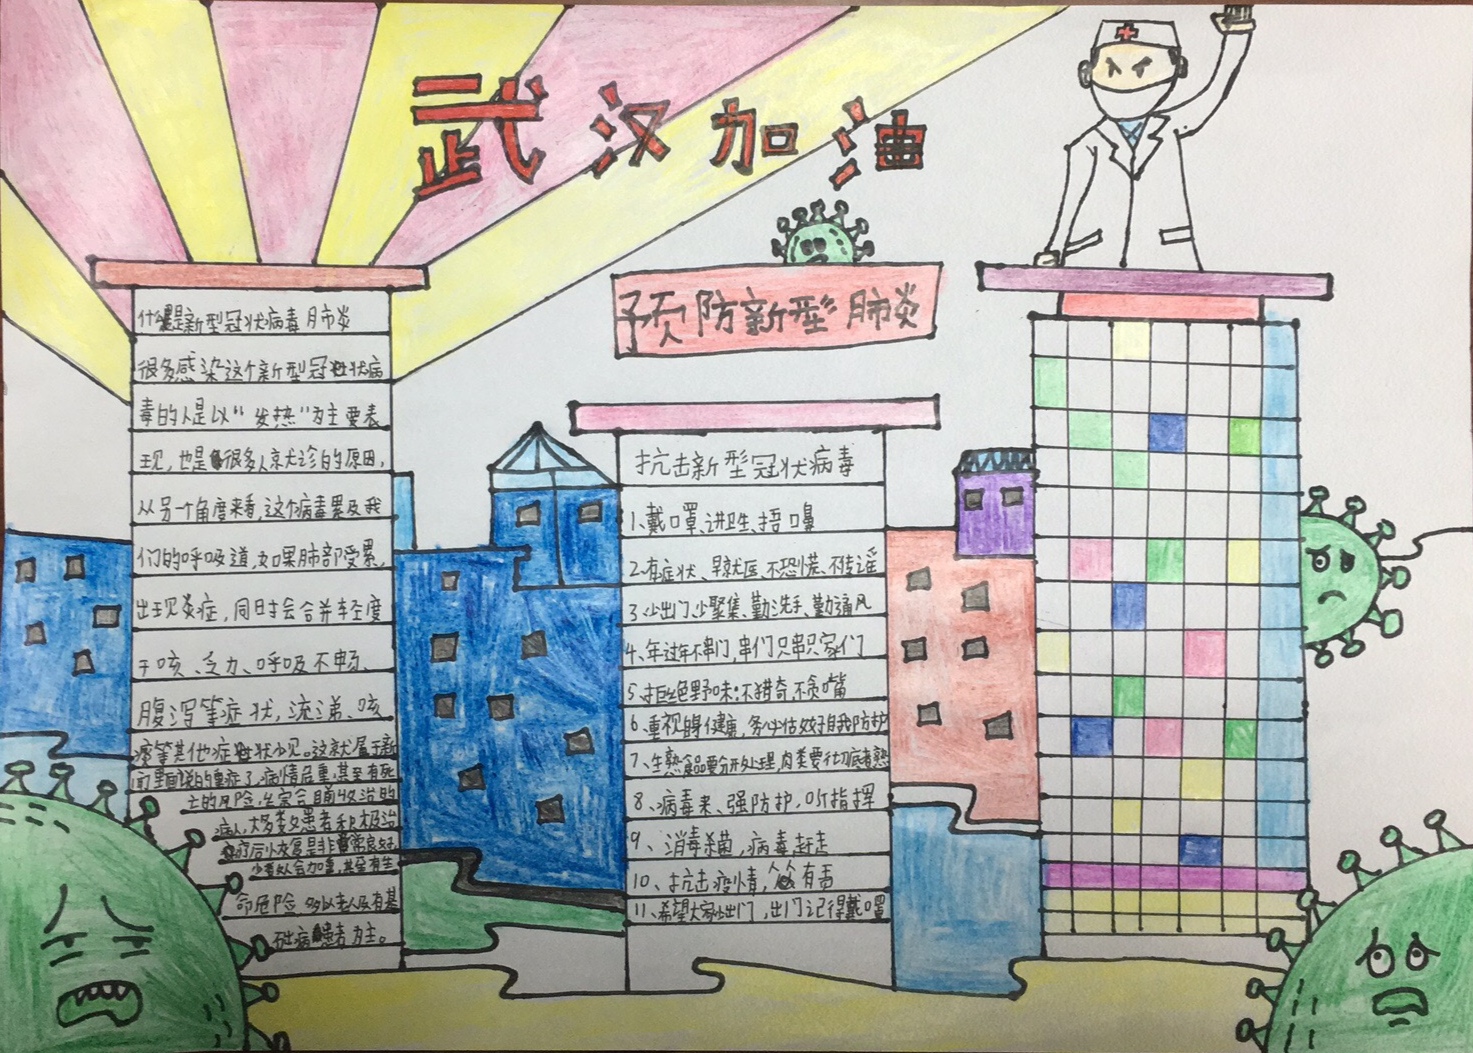 武汉加油
预防新型肺炎
什么是新型冠状病毒肺炎
很多感染这个新型冠状病
毒的人是以“发热”为主要表
现，也是很多人京尤诊的原因，
从另一个角度来看，这个病毒累及我
们的呼吸道，如果肺部受累，
出现炎症，同时会合并轻度
干咳、乏力、呼吸不畅、
腹泻等症状，流涕、咳
痰等其他症状少见。这就属于新
前里面说的重症了，病情严重，甚至有死
亡的风险，
病人，大多数患者积极治
疗后恢复是非常良好，
少数会加重，甚至有生
命危险，多以老人及有基
础病患者为主。
抗击新型冠状病毒
1、戴口罩、讲卫生、捂口鼻
2、有症状、早就医、不恐慌、不传谣
3、少出门、少聚集、勤洗手、勤通风
4、年过年不串门，串门只串只家门
5、拒绝野味：不猎奇，不贪嘴
6、重视身健康，务必估效好自我防护
7、生熟食品要分开处理，肉类要彻底煮熟
8、病毒来、强防护，听指挥
9、消毒杀菌，病毒赶走
10、抗击疫情，人人有责
11、希望大家少出门，出门记得戴口罩